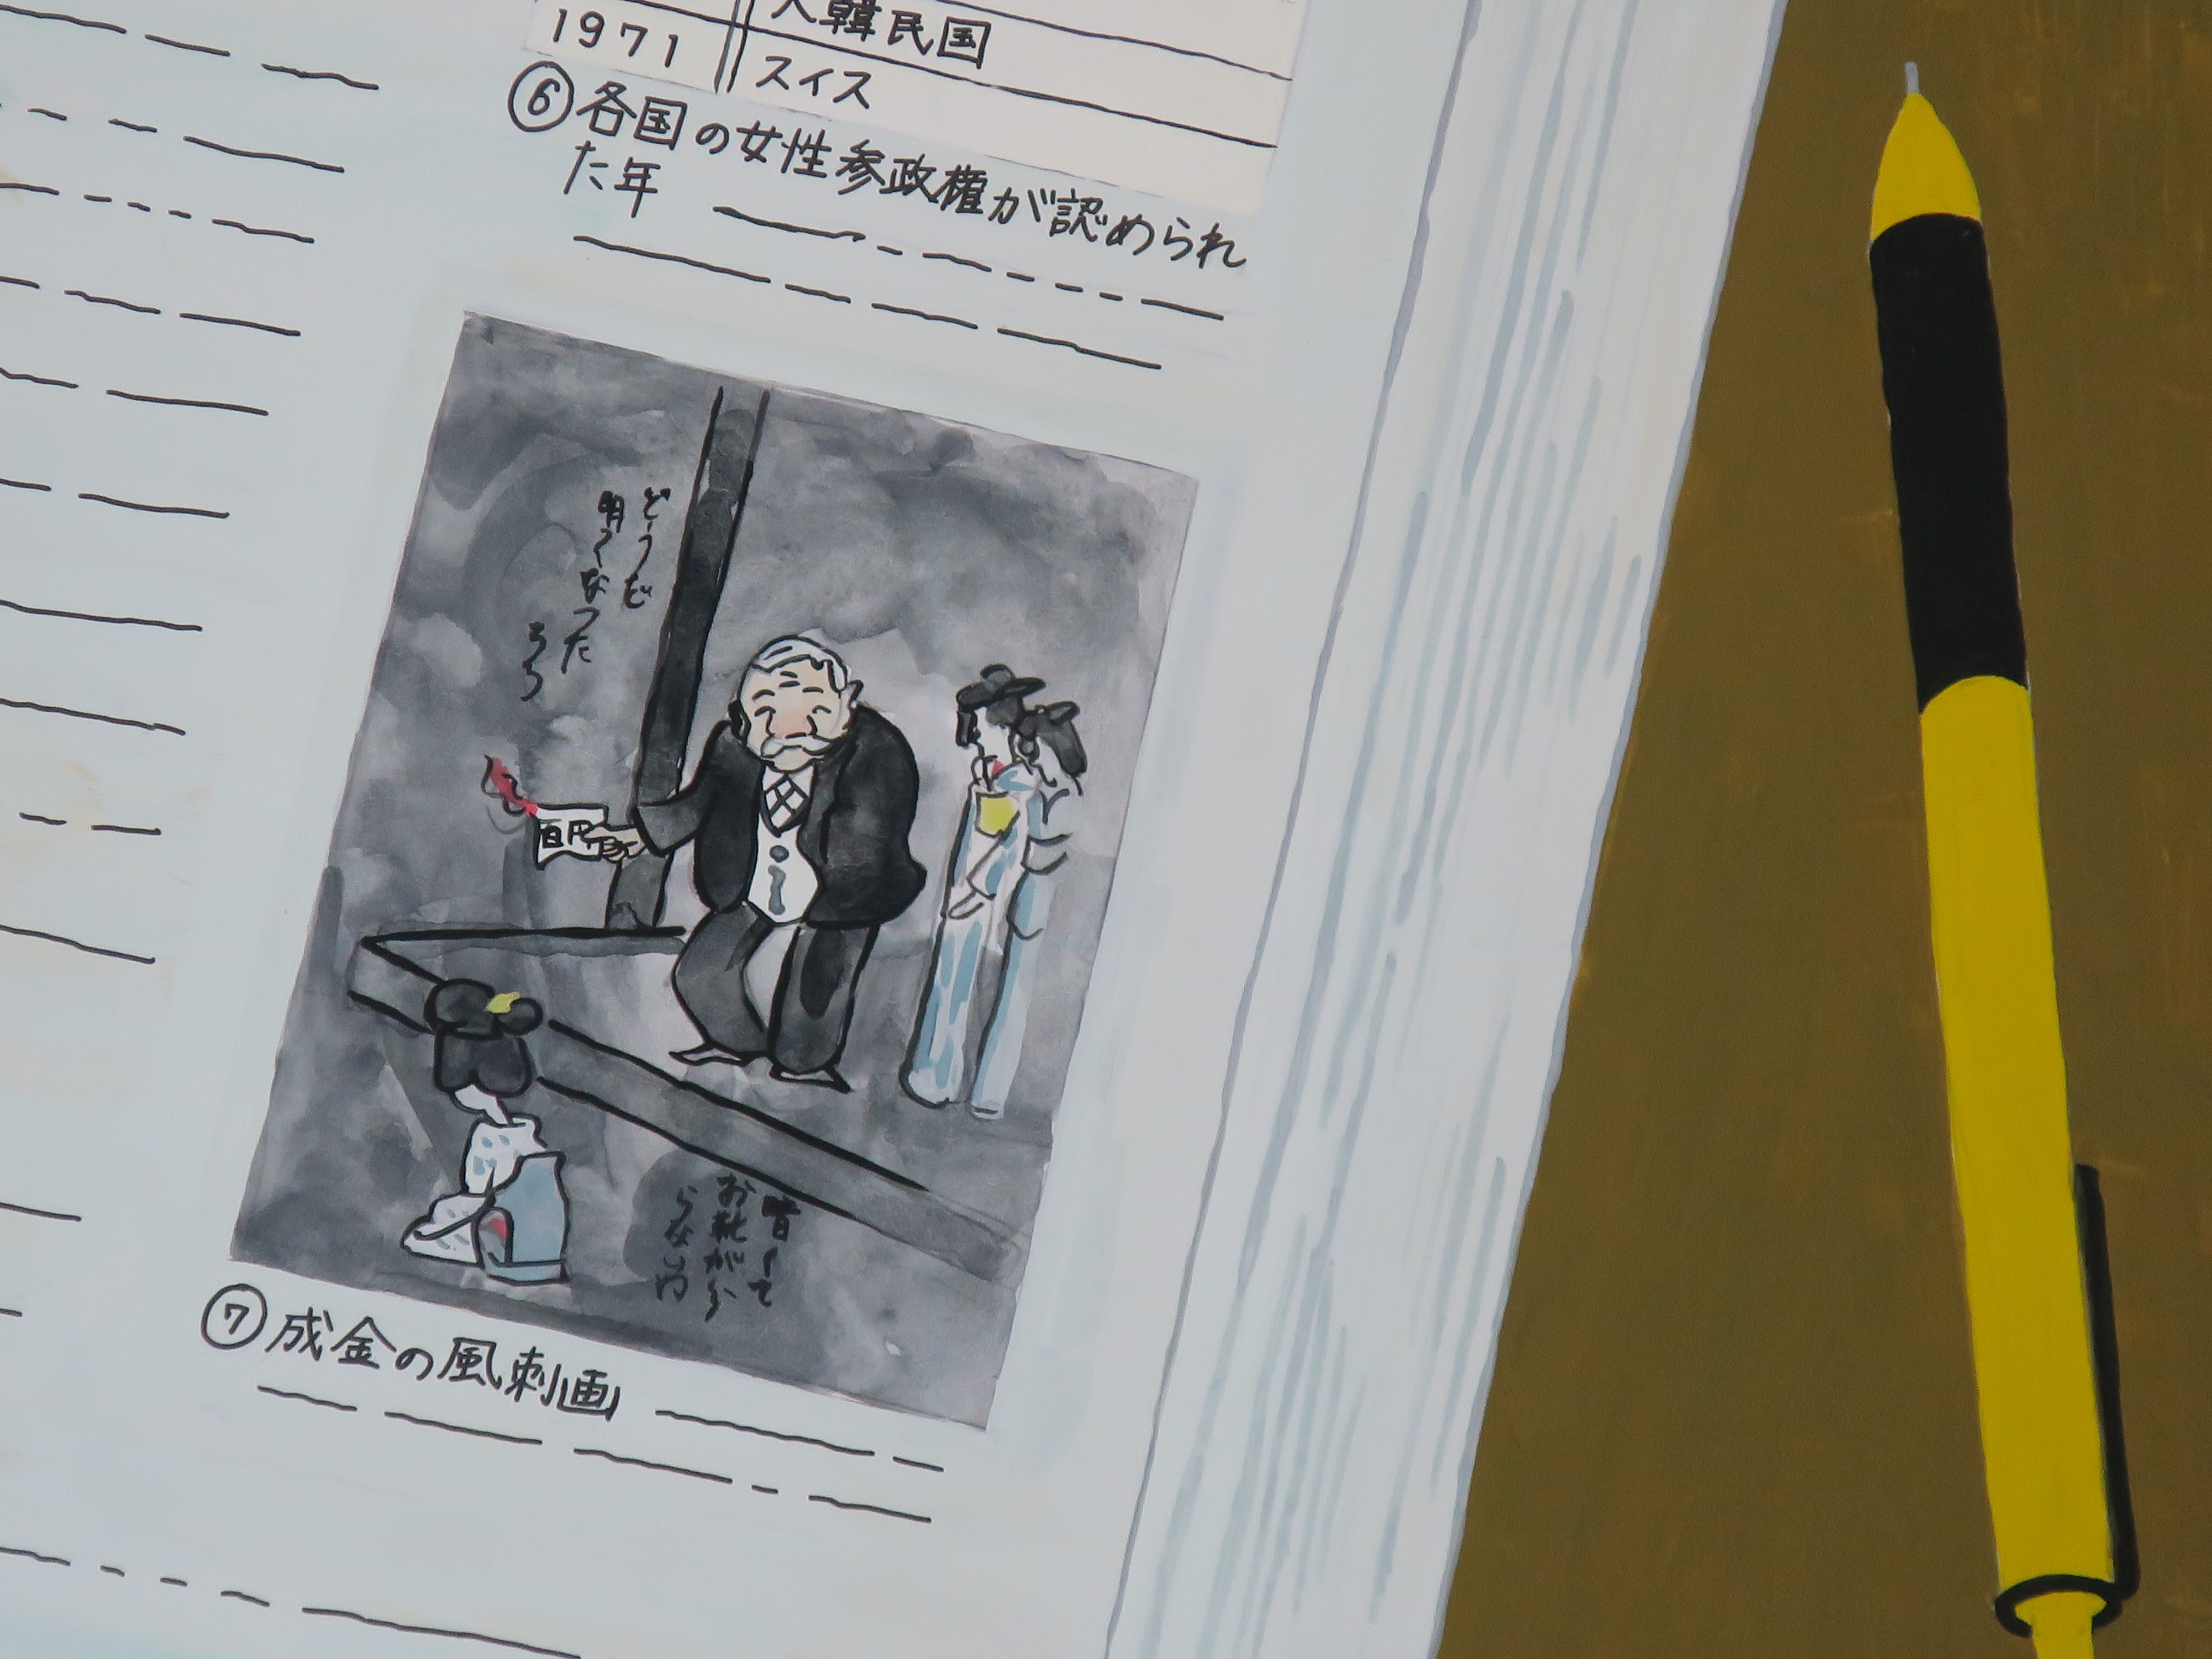 大韓民国
1971
スイス
⑥各国の女性参政権が認められ
た年
どうだ
明くなつた
ろう
百円
暗くて
お靴が分
らないわ
⑦成金の風刺画